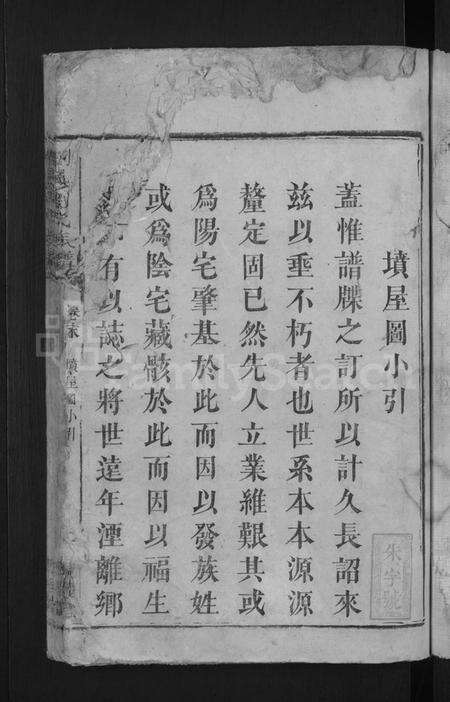 墳屋圖小引
蓋惟譜牒之訂所以計久長詔來
茲以垂不朽者也世系本本源源
釐定固已然先人立業維艱其或
爲陽宅肇基於此而因以發族姓
或爲陰宅藏骸於此而因以福生
有以誌之將世遠年湮離鄉
卷末 墳屋圖小引
朱字號
FamilySearch